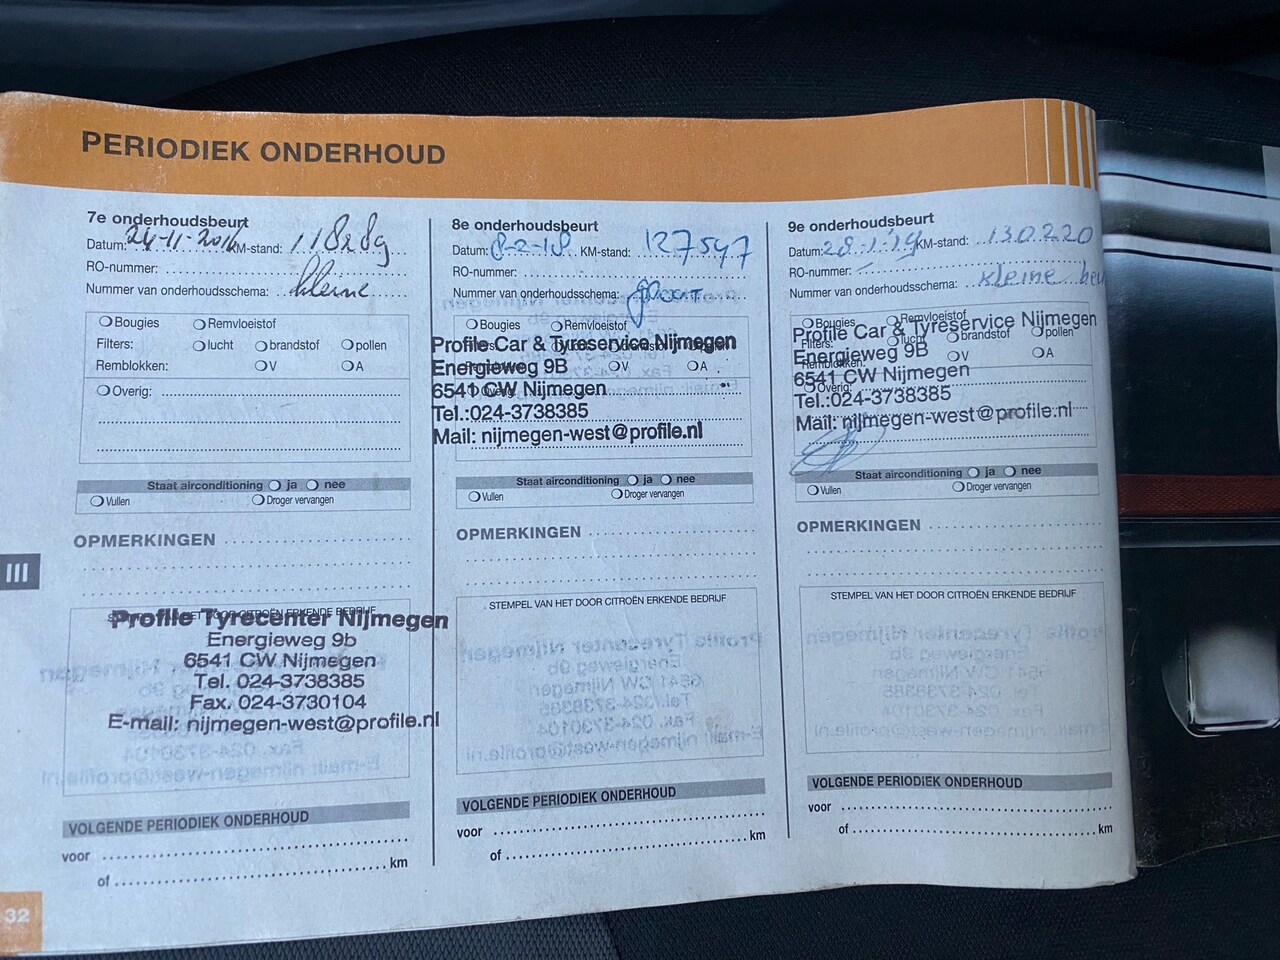 PERIODIEK ONDERHOUD
7e onderhoudsbeurt
Datum: 24-11-2016 KM-stand: 118289
RO-nummer:
Nummer van onderhoudsschema: kleine
Bougies Remvloeistof
Filters: lucht brandstof pollen
Remblokken: V A
Overig:
Staat airconditioning ja nee
Vullen Droger vervangen
OPMERKINGEN
Profile Tyrecenter Nijmegen
Energieweg 9b
6541 CW Nijmegen
Tel. 024-3738385
Fax. 024-3730104
E-mail: nijmegen-west@profile.nl
VOLGENDE PERIODIEK ONDERHOUD
voor
of km
8e onderhoudsbeurt
Datum: 8-2-18 KM-stand: 127547
RO-nummer:
Nummer van onderhoudsschema: groot
Bougies Remvloeistof
Profile Car & Tyreservice Nijmegen
Energieweg 9B
V A
6541 CW Nijmegen
Tel.:024-3738385
Mail: nijmegen-west@profile.nl
Staat airconditioning ja nee
Vullen Droger vervangen
OPMERKINGEN
STEMPEL VAN HET DOOR CITROËN ERKENDE BEDRIJF
VOLGENDE PERIODIEK ONDERHOUD
voor
of km
9e onderhoudsbeurt
Datum: 28-1-19 KM-stand: 130.220
RO-nummer:
Nummer van onderhoudsschema: kleine beu
Bougies Remvloeistof
Profile Car & Tyreservice Nijmegen
Filters: lucht pollen
Energieweg 9B
Remblokken: V A
6541 CW Nijmegen
Overig:
Tel.:024-3738385
Mail: nijmegen-west@profile.nl
Staat airconditioning ja nee
Vullen Droger vervangen
OPMERKINGEN
STEMPEL VAN HET DOOR CITROËN ERKENDE BEDRIJF
VOLGENDE PERIODIEK ONDERHOUD
voor
of km
III
32